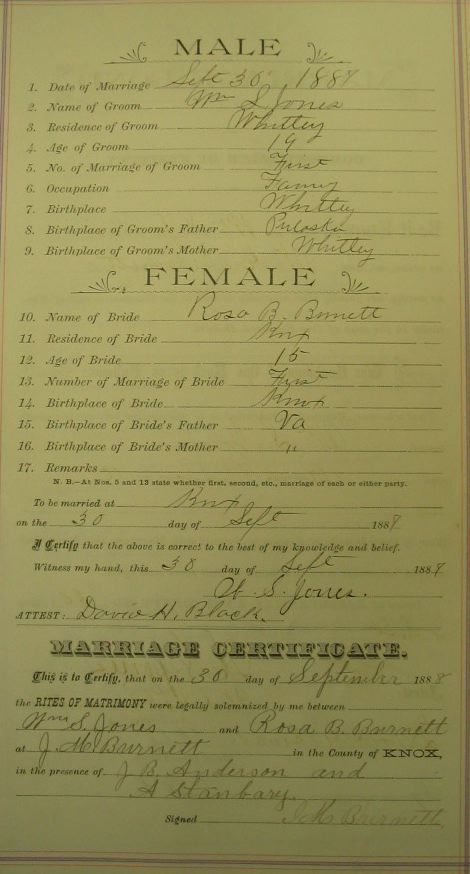 MALE
1. Date of Marriage Sept 30 1889
2. Name of Groom Wm S Jones
3. Residence of Groom Whitley
4. Age of Groom 19
5. No. of Marriage of Groom First
6. Occupation
7. Birthplace Whitley
8. Birthplace of Groom's Father Pulaski
9. Birthplace of Groom's Mother Whitley
FEMALE
10. Name of Bride Rosa B. Burnett
11. Residence of Bride Knx
12. Age of Bride 15
13. Number of Marriage of Bride First
14. Birthplace of Bride Knox
15. Birthplace of Bride's Father Va
16. Birthplace of Bride's Mother "
17. Remarks
N. B.—At Nos. 5 and 13 state whether first, second, etc., marriage of each or either party.
To be married at Knx
on the 30 day of Sept 1889
I Certify that the above is correct to the best of my knowledge and belief.
Witness my hand, this 30 day of Sept 1889
W. S. Jones.
ATTEST: David H. Black.
MARRIAGE CERTIFICATE.
This is to Certify, that on the 30 day of September 1888
the RITES OF MATRIMONY were legally solemnized by me between
Wm S. Jones and Rosa B. Burnett
at J. M. Burnett in the County of KNOX,
in the presence of J B. Anderson and
A Stanbary.
Signed J M Burnett